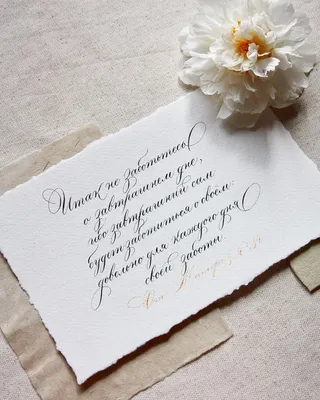 Итак не заботьтесь
о завтрашнем дне,
ибо завтрашний сам
будет заботиться о своем:
довольно для каждого дня
своей заботы.